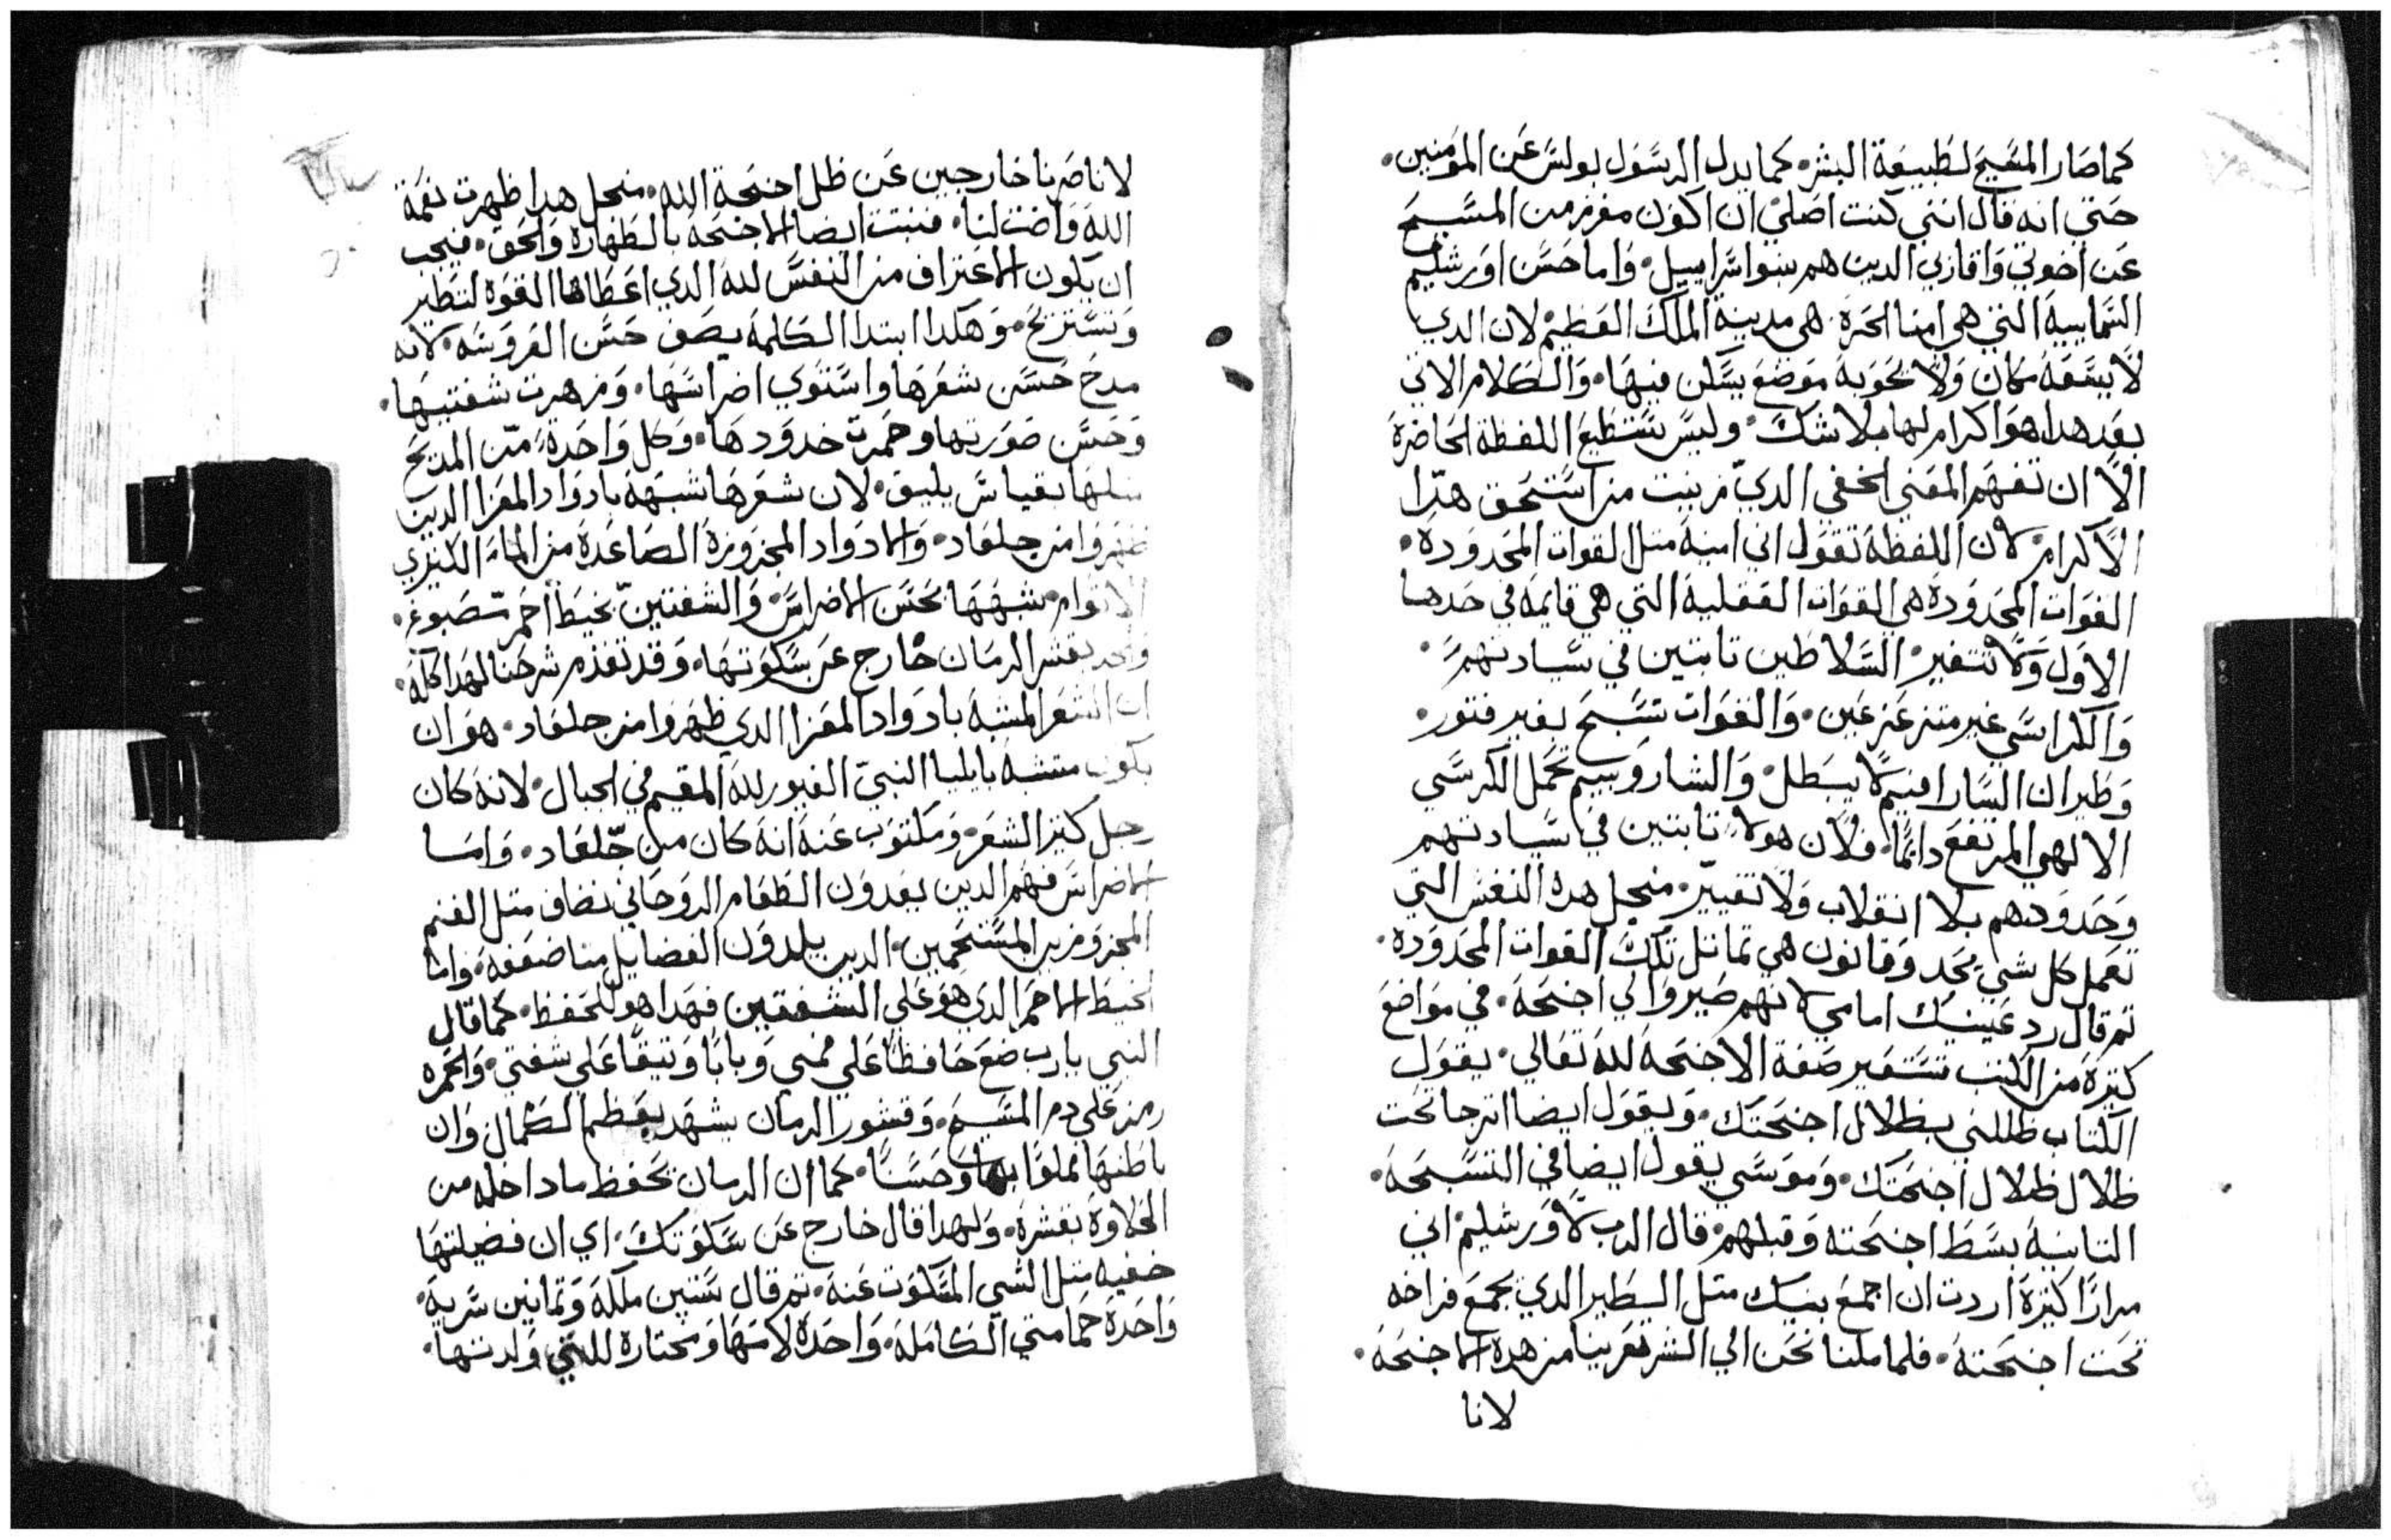 كما صار المسيح لطبيعة البشر. كما يدل الرسول بولس عن المومنين.
حتي انه قال انني كنت اصلي ان اكون مفرز من المسيح
عن اخوتي واقاربي الدين هم بنوا سراييل. واما حسن اورشليم
السماييية التي هي امنا الحرة. هي مدينة الملك العظيم لان الدي
لا يسعه مكان ولا يحويه موضع يسكن فيها. والكلام الاتي
بعد هدا هو اكرام لها بلا شك. وليس تستطيع اللفظة الحاضرة
الا ان تفهم المعني الخفي الدي زينت من استحق هدا
الاكرام. لان اللفظة تقول اني امينة متل القوات المحدودة.
القوات المحدودة هي القوات العقلية التي هي قايمة في حدها
الاول ولا تتغير. السلاطين تابتين في سيادتهم.
والكراسي غير متزعزعين. والقوات تسبح بغير فتور.
وطيران السارافيم لا يبطل. والشاروبيم تحمل الكرسي
الالهي المرتفع دايما. فلان هولا تابتين في سيادتهم
وحدودهم بلا انقلاب ولا تغيير. منجل هده النفس التي
تعمل كل شي بحد وقانون هي تماتل تلك القوات المحدودة.
تم قال رد عينيك امامي لانهم صيروا لي اجنحة. في مواضع
كتيرة من الكتب تستعير صفة الاجنحة لله تعالي. يقول
الكتاب ظللني بظلال اجنحتك. ويقول ايضا اترجا تحت
ظلال ظلال اجنحتك. وموسي يقول ايضا في التسبحة.
التانية بسط اجنحته وقبلهم. قال الرب لاورشليم اني
مرارا كتيرة اردت ان اجمع بنيك متل الطير الدي يجمع فراخه
تحت اجنحته. فلما ملنا نحن الي الشر تعرينا من هده الاجنحة.
لانا
لانا صرنا خارجين عن ظل اجنحة الله. منجل هدا ظهرت نعمة
الله واضت لنا. فنبتت ايضا الاجنحة بالطهارة والحق. فيجب
ان يكون الاعتراف من النفس لله الدي اعطاها القوة لتطير
وتستريح. وهكدا ابتدا الكلمة يصف حسن العروسه. لانه
مدح حسن شعرها واستوي اضراسها. وزهرت شفتيها.
وحسن صورتها وحمرت خدودها. وكل واحدة من المديح
بقياس يليق. لان شعرها شبهه بادواد المعزا الدين
ظهروا من جلعاد. والادواد المجزوزة الصاعدة من الماء الكتيري
الاتوام. شبهها بحسن الاضراس. والشفتين بخيط احمر مصبوغ.
والخد بقشر الرمان خارج عن سكوتها. وقد تقدم شرحنا لهدا كله.
ان الشعر المشبه بادواد المعزا الدي ظهروا من جلعاد. هو ان
يكون متشبه بايليا النبي الغيور لله المقيم في الجبال. لانه كان
رجل كتير الشعر. ومكتوب عنه انه كان من جلعاد. واما
الاضراس فهم الدين يعدون الطعام الروحاني نضاف متل الغنم
المجزوزين المستحمين. الدين يلدون الفضايل متضاعفة. واما
الخيط الاحمر الدي هو علي الشفتين فهدا هو للحفظ. كما قال
النبي يارب ضع حافظا علي فمي وبابا وتيقا علي شفتي. والحمرة
رمز علي دم المسيح. وقشور الرمان يشهد بعظم الكمال وان
باطنها مملوا بها وحسنا. كما ان الرمان تحفظ ما داخله من
الحلاوة بقشره. ولهدا قال خارج عن سكوتك. اي ان فضيلتها
خفيه متل الشي المسكوت عنه. تم قال ستين ملكة وتمانين سرية.
واحدة حمامتي الكاملة. واحدة لامها ومختارة للتي ولدتها.